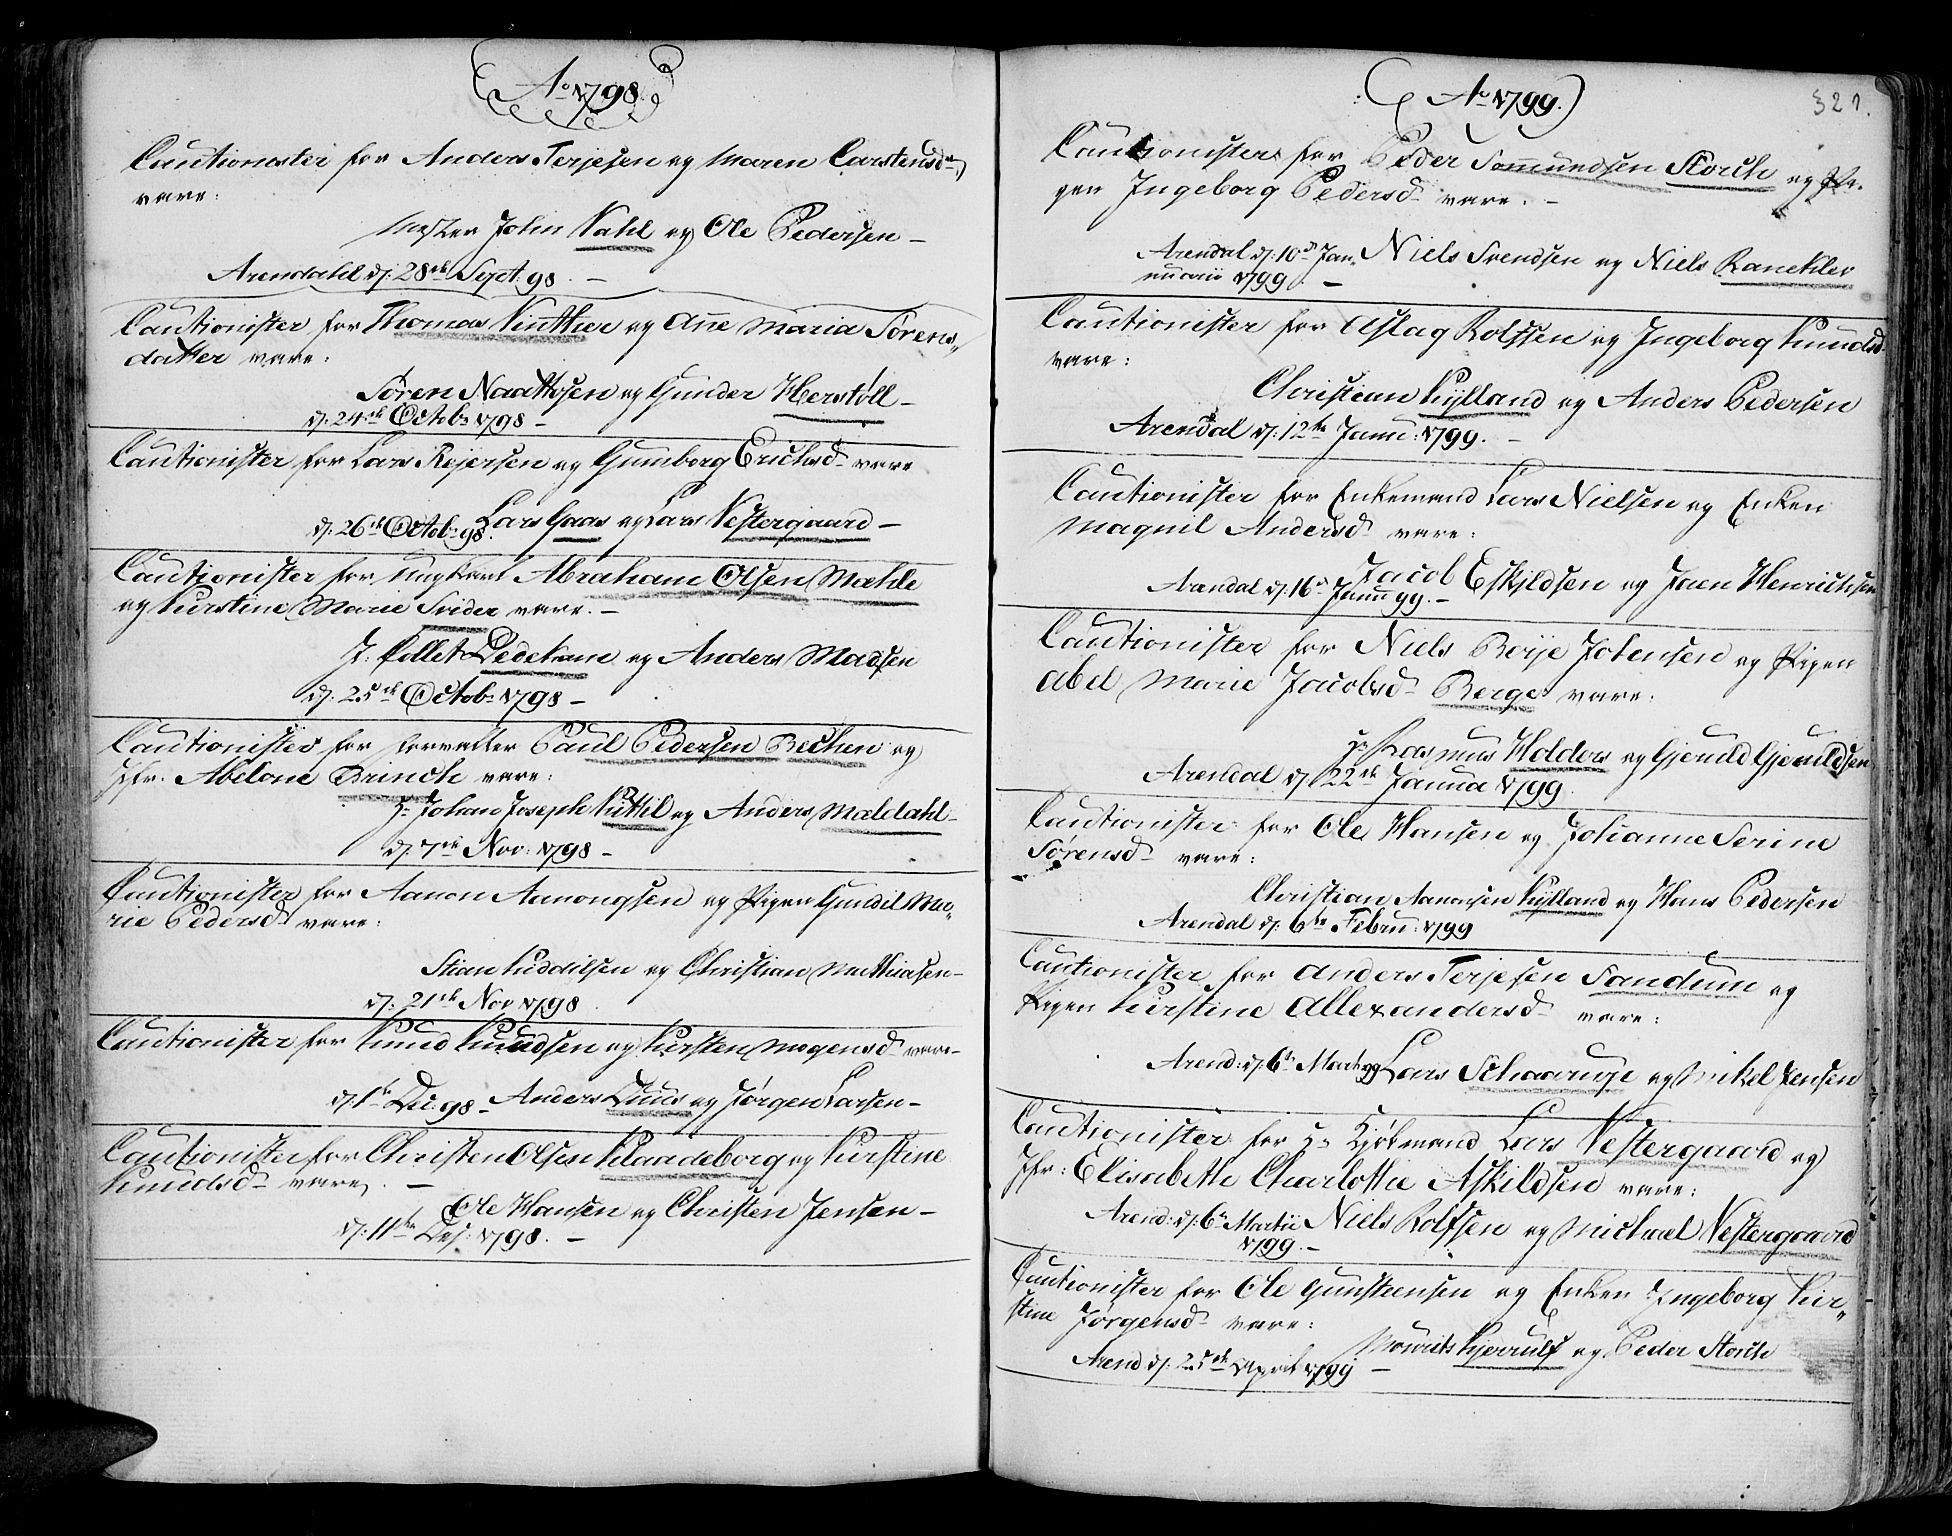 Ao 1798.
Cautionister for Anders Terjesen og Maren Carstensd.
vare:
Mester John Vahl og Ole Pedersen –
Arendahl d: 28de Sept. 98. –
Cautionister for Thomas Vinther og Ane Maria Sørens„
datter vare:
Søren Naattosen og Gunder Herstöll –
d: 24de Octob. 1798 –
Cautionister for Lars Rejersen og Gunnborg Erichsd. vare
Lars Gaas og Lars Vestergaard –
d: 26de Octob. 98.
Cautionister for Ungkarl Abraham Olsen Mæhle
og Kirstine Marie Svider vare. –
J: Pollet Dedekam og Anders Madsen
d: 25de Octob. 1798 –
Cautionister for Forvalter Paul Pedersen Bechen og
Jfr. Abelone Brinch vare:
Hr Johan Joseph Kittil og Anders Maldahl –
d: 7de Nov: 1798 –
Cautionister for Aanon Aanongsen og Pigen Gundil Ma„
rie Pedersd. vare:
Stian Kiddilsen og Christian Matthiasen –
d: 21de Nov 1798
Cautionister for Knud Knudsen og Kirsten Mogensd. vare –
d: 1de Dec. 98 – Anders Duus og Jørgen Larsen –
Cautionister for Christen Olsen Klaadeborg og Kirstine
Knudsd. vare. –
Ole Hansen og Christen Jensen –
d: 11te Dec: 1798. –
Ao 1799.
321.
Cautionister for Peder Somundsen Storch og Pi„
gen Ingeborg Pedersd. vare. –
Arendal d: 10de Jan„ Niels Svendsen og Niels Ranekler
nuarii 1799. –
Cautionister for Aslag Rolfsen og Ingeborg Knudsd.
vare:
Christian Kylland og Anders Pedersen
Arendal d: 12te Janu: 1799. –
Cautionister for Enkemand Lars Nielsen og Enken
Magnil Andersd. vare:
Jacob Eskjldsen og Jaen Henrichsen
Arendal d: 16de Janu 99. –
Cautionister for Niels Borje Johensen og Pigen
Abel Marie Jacobsd. Berge vare:
Hr Rasmus Holders og Gjeruld Gjeruldsen
Arendal d: 22de Janua 1799.
Cautionister for Ole Hansen og Johanne Serine
Sørensd. vare:
Christian Aanonsen Kylland og Hans Pedersen
Arendal d: 6te Febru: 1799
Cautionister for Anders Terjesen Sandum og
Pigen Kirstine Allexandersd. vare:
Arend: d: 6te Martii 99 Lars Schaarup og Mikel Jensen
Cautionister for Hr Kjøbmand Lars Vestergaard og
Jfr: Elisabeth Charlotha Askildsen vare:
Arend: d: 6te Martii Niels Rolfsen og Michael Vestergaard
1799. –
Cautionister for Ole Gunsteensen og Enken Ingeborg Kir„
stine Jørgensd. vare:
Mourits Kjerulf og Peder Storch
Arend d: 25de April 1799 –